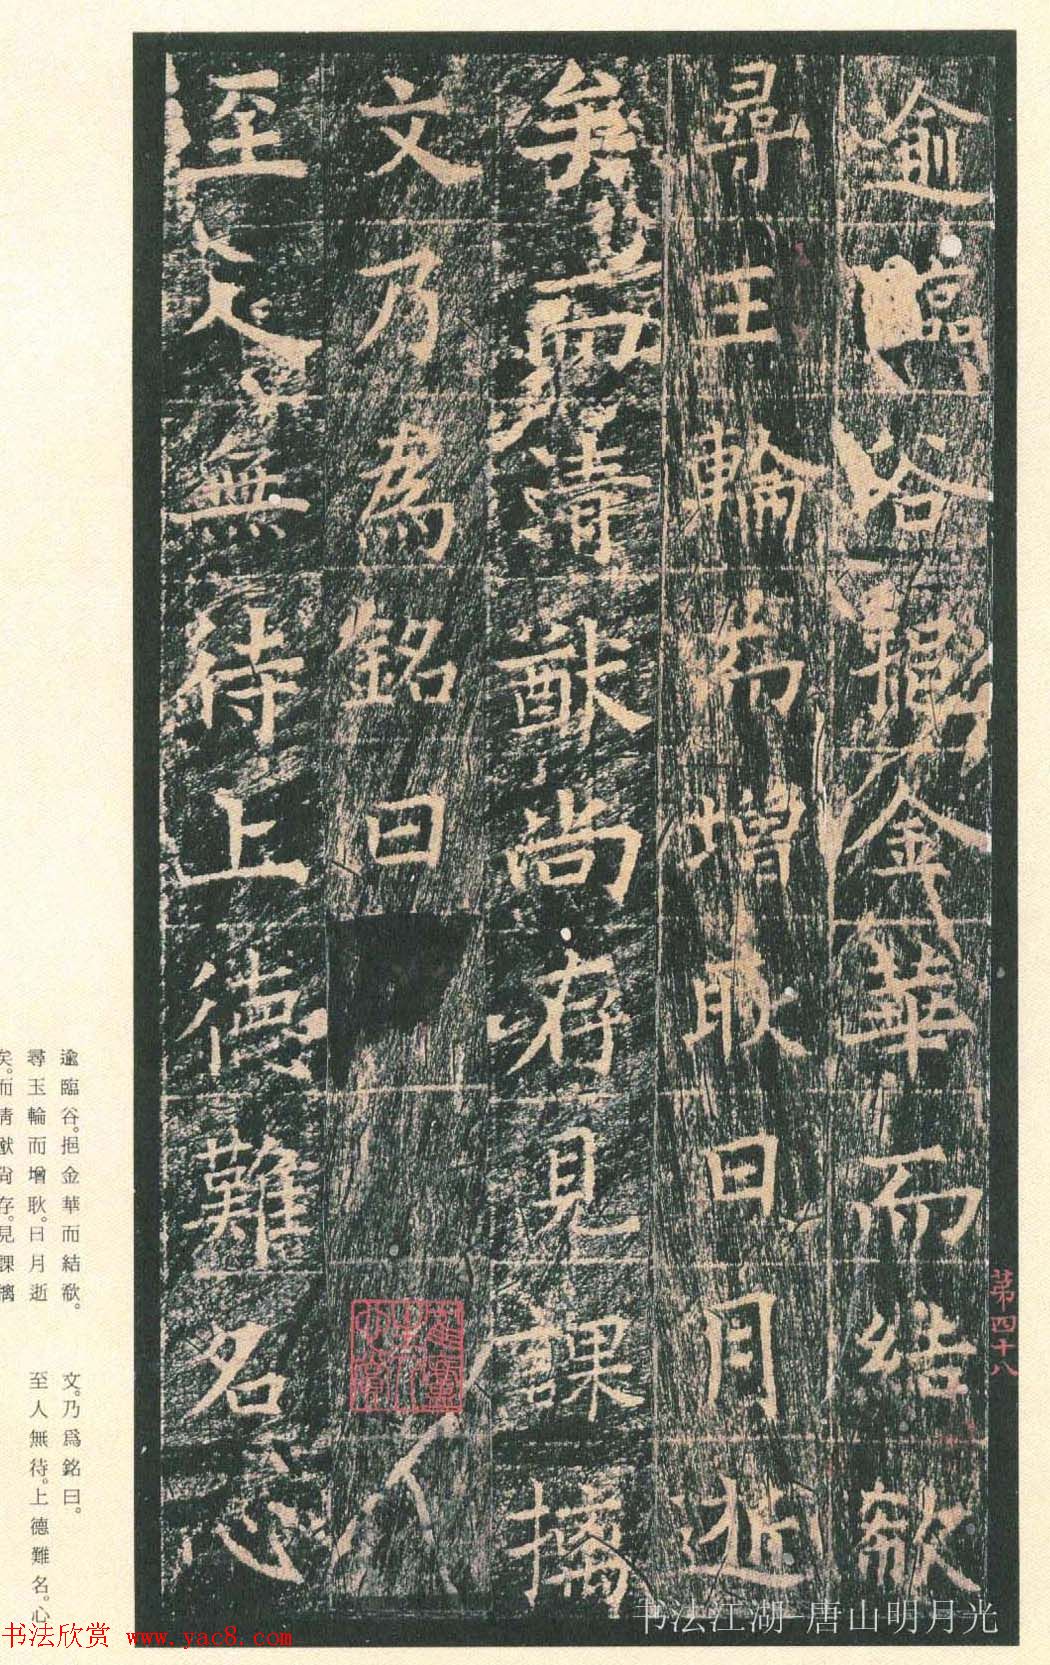 逾臨谷挹金華而結欷
尋玉輪而增耿日月逝
矣而清猷尚存見課摛
文乃為銘曰
至人無待上德難名心
第四十八
逾臨谷。挹金華而結欷。
尋玉輪而增耿。日月逝
矣。而清猷尚存。見課摛
文。乃爲銘曰。
至人無待。上德難名。心
书法江湖-唐山明月光
书法欣赏 www.yac8.com